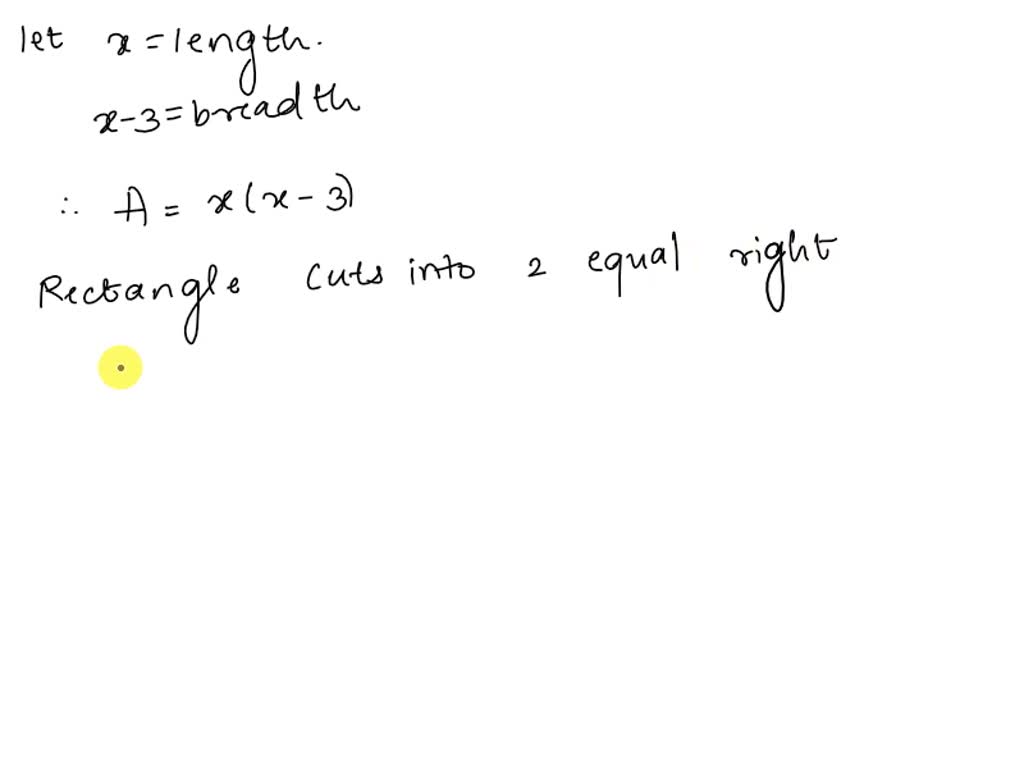 let x = length.
x-3 = breadth
∴ A = x(x-3)
Rectangle cuts into 2 equal right